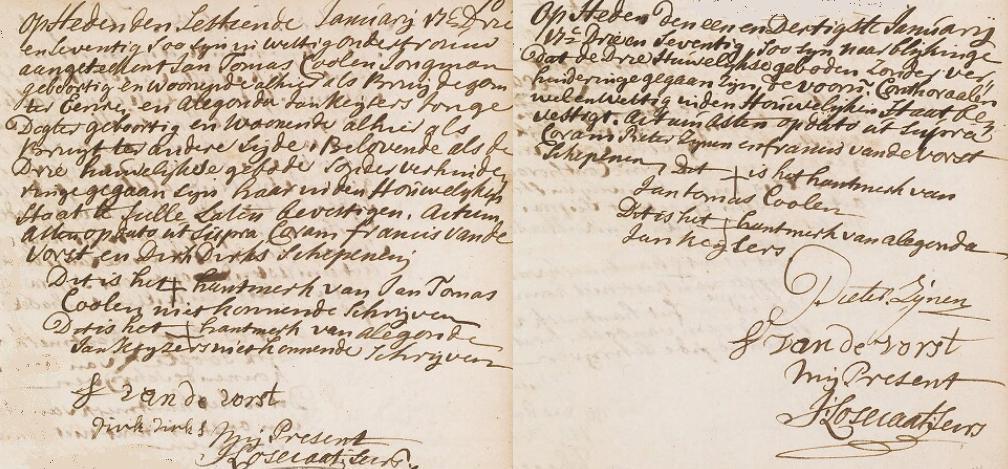 Op Heden den sestiende Januarij 17c Drie
en seventig soo sijn in wettig ondertrouw
aangetekent Jan Tomas Coolen Jongman
geboortig en woonende alhier als Bruijdegom
ter eenre, en alegonda Jan Keijsers Jonge
Dogter geboortig en woonende alhier als
Bruijt ter andere sijde, Belovende als de
Drie huwelijkse geboode sonder verhinde
ringe gegaan sijn haar in den Houwelijken
Staat te sulle Laten bevestigen. Actum
Asten op dato ut supra Coram francis van de
vorst en Dirk Dirks Schepenen
Dit is het + hantmerk van Jan Tomas
Coolen niet konnende schrijven
Dit is het + hantmerk van alegonda
Jan Keijzers niet konnende schrijven
f van de vorst
dirk dirks
Mij Present
Op Heden den een en dertigste Januarij
17c Drie en seventig, soo sijn naar blijkinge
dat de Drie Huwelijkse geboden zonder ver
hinderinge gegaan zijn, de voorn. Conthoralen
wel en wettig in den Houwelijken Staat be
vestigt. Actum Asten op dato ut supra
Coram Pieter Zijnen en francis van de vorst
Schepenen
Dit + is het hantmerk van
Jan tomas Coolen
Dit is het + hantmerk van alegonda
Jan Keijsers
Pieter Zijnen
f van de vorst
Mij Present